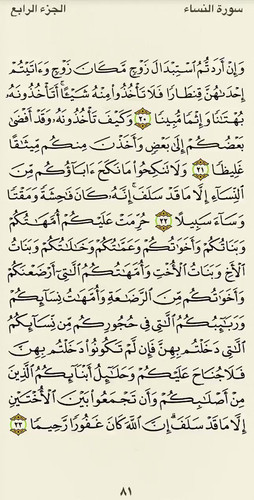 سورة النساء الجزء الرابع
وَإِنْ أَرَدتُّمُ ٱسْتِبْدَالَ زَوْجٍ مَّكَانَ زَوْجٍ وَءَاتَيْتُمْ
إِحْدَىٰهُنَّ قِنطَارًا فَلَا تَأْخُذُوا۟ مِنْهُ شَيْـًٔا أَتَأْخُذُونَهُۥ
بُهْتَٰنًا وَإِثْمًا مُّبِينًا ٢٠ وَكَيْفَ تَأْخُذُونَهُۥ وَقَدْ أَفْضَىٰ
بَعْضُكُمْ إِلَىٰ بَعْضٍ وَأَخَذْنَ مِنكُم مِّيثَٰقًا
غَلِيظًا ٢١ وَلَا تَنكِحُوا۟ مَا نَكَحَ ءَابَآؤُكُم مِّنَ
ٱلنِّسَآءِ إِلَّا مَا قَدْ سَلَفَ ۚ إِنَّهُۥ كَانَ فَٰحِشَةً وَمَقْتًا
وَسَآءَ سَبِيلًا ٢٢ حُرِّمَتْ عَلَيْكُمْ أُمَّهَٰتُكُمْ
وَبَنَاتُكُمْ وَأَخَوَٰتُكُمْ وَعَمَّٰتُكُمْ وَخَٰلَٰتُكُمْ وَبَنَاتُ
ٱلْأَخِ وَبَنَاتُ ٱلْأُخْتِ وَأُمَّهَٰتُكُمُ ٱلَّٰتِىٓ أَرْضَعْنَكُمْ
وَأَخَوَٰتُكُم مِّنَ ٱلرَّضَٰعَةِ وَأُمَّهَٰتُ نِسَآئِكُمْ
وَرَبَٰٓئِبُكُمُ ٱلَّٰتِى فِى حُجُورِكُم مِّن نِّسَآئِكُمُ
ٱلَّٰتِى دَخَلْتُم بِهِنَّ فَإِن لَّمْ تَكُونُوا۟ دَخَلْتُم بِهِنَّ
فَلَا جُنَاحَ عَلَيْكُمْ وَحَلَٰٓئِلُ أَبْنَآئِكُمُ ٱلَّذِينَ
مِنْ أَصْلَٰبِكُمْ وَأَن تَجْمَعُوا۟ بَيْنَ ٱلْأُخْتَيْنِ
إِلَّا مَا قَدْ سَلَفَ ۗ إِنَّ ٱللَّهَ كَانَ غَفُورًا رَّحِيمًا ٢٣
٨١